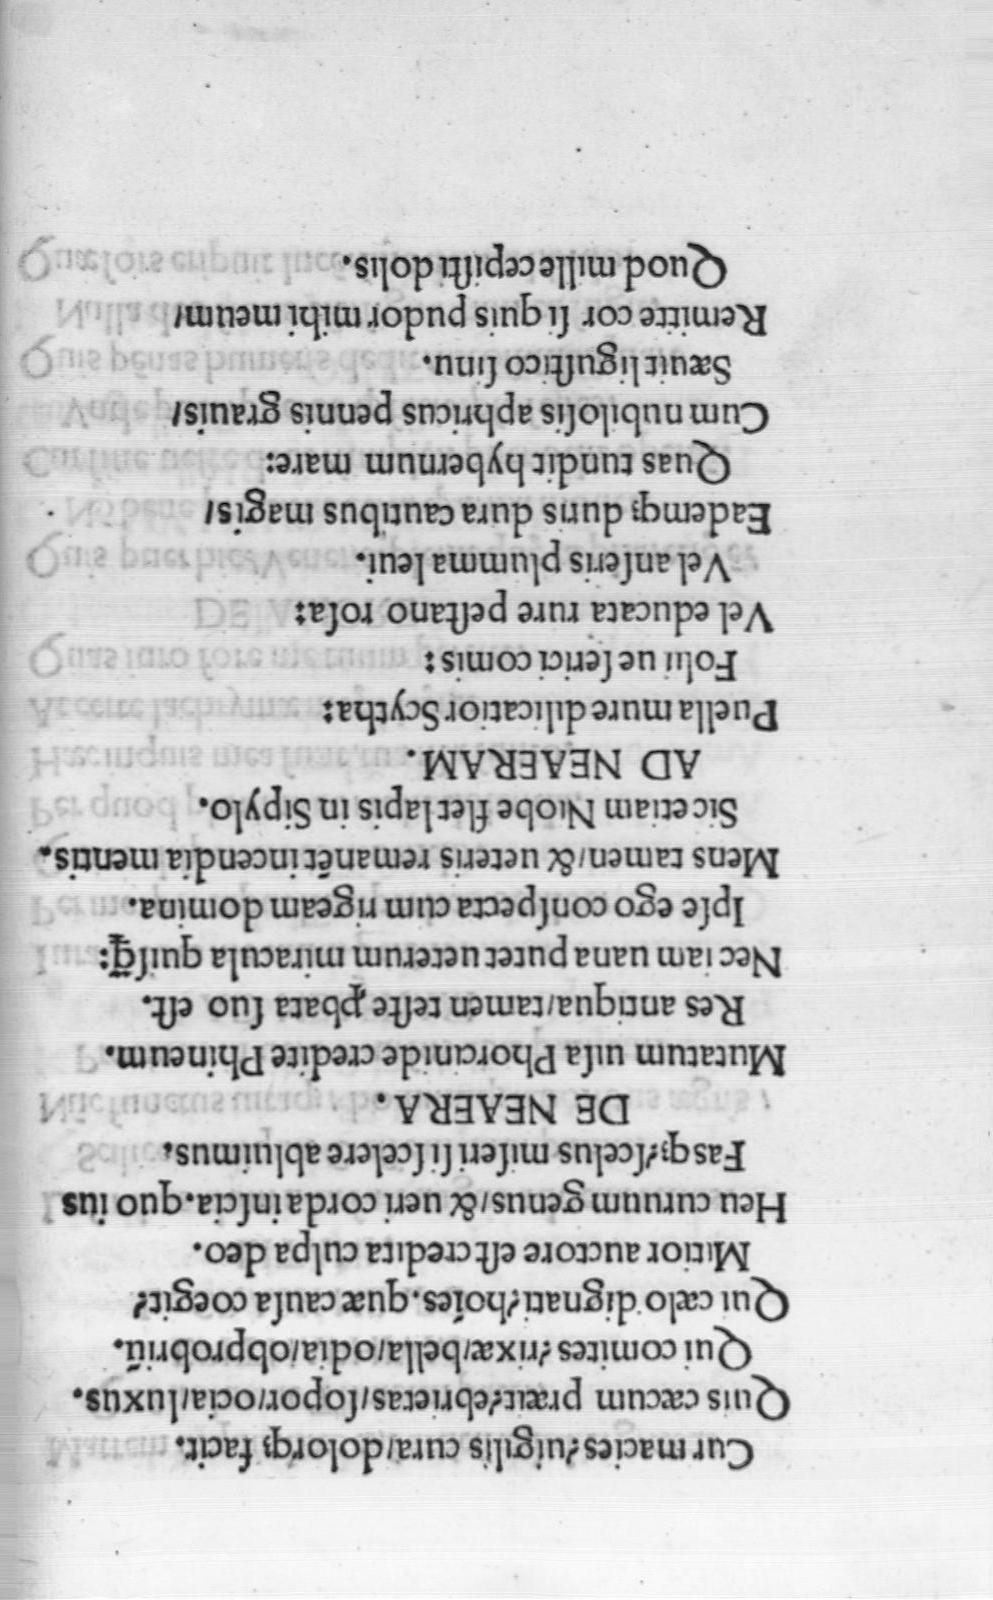 Cur macies?uigilis cura/dolorq; facit.
Quis cæcum præit?ebrietas/ſopor/ocia/luxus.
Qui comites?rixæ/bella/odia/obprobriū.
Qui cælo dignati?hoīes.quæ cauſa coegit?
Mitior auctore eſt credita culpa deo.
Heu curuum genus/& ueri corda inſcia.quo ius
Fasq;?ſcelus miſeri ſi ſcelere abluimus.
DE NEAERA.
Mutatum uiſa Phorcinide credite Phineum.
Res antiqua/tamen teſte ꝓbata ſuo eſt.
Nec iam uana putet ueterum miracula quiſꝗ̄:
Ipſe ego conſpecta cum rigeam domina.
Mens tamen/& ueteris remanēt incendia mentis.
Sic etiam Niobe flet lapis in Sipylo.
AD NEAERAM.
Puella mure dilicatior Scytha:
Folii ue ſerici comis:
Vel educata rure peſtano roſa:
Vel anſeris plumma leui.
Eademq; duris dura cautibus magis/
Quas tundit hybernum mare:
Cum nubiloſis aphricus pennis grauis/
Sæuit liguſtico ſinu.
Remitte cor ſi quis pudor mihi meum/
Quod mille cepiſti dolis.